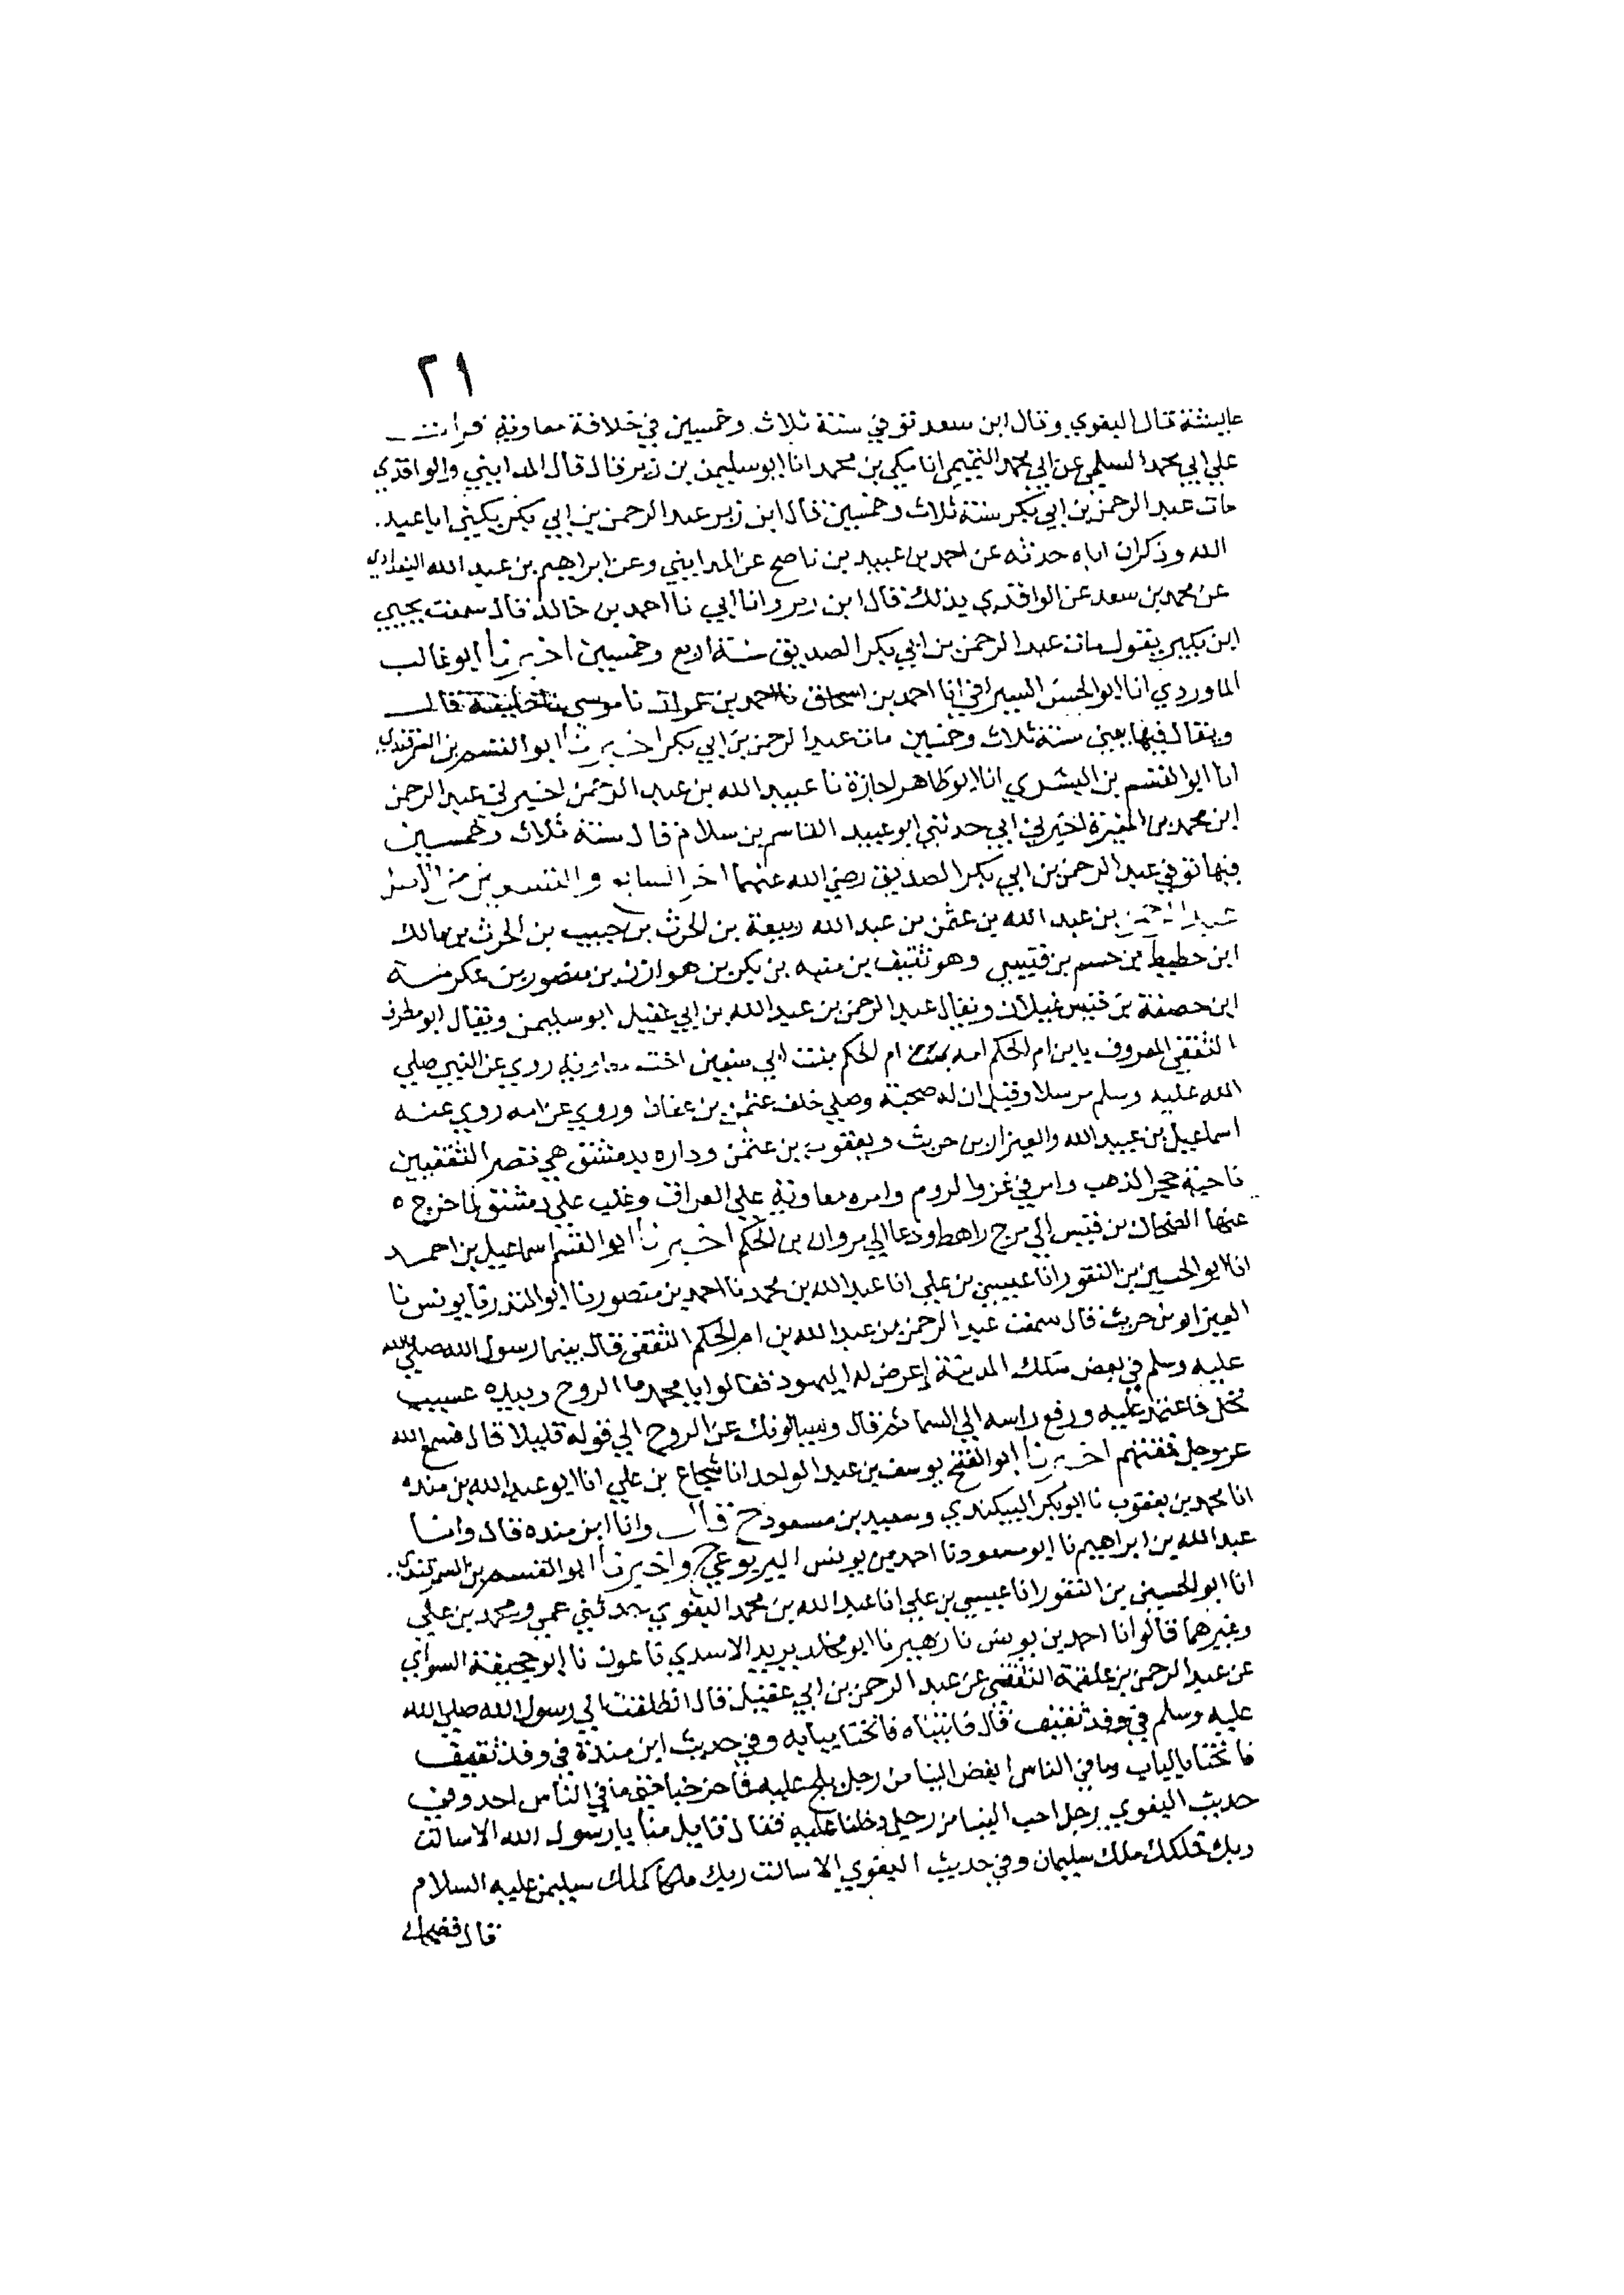 ٢١
عايشة قال البغوي وقال ابن سعد توفي سنة ثلاث وخمسين في خلافة معاوية قرات
علي ابي محمد السلمي عن ابي محمد التميمي انا مكي بن محمد انا ابو سليمن بن زبر قال قال المدايني والواقدي
مات عبد الرحمن بن ابي بكر سنة ثلاث وخمسين قال ابن زبر عبد الرحمن بن ابي بكر يكني ابا عبد
الله وذكر ان اباه حدثه عن احمد بن عبيد بن ناصح عن المدايني وعن ابراهيم بن عبد الله البغدادي
عن محمد بن سعد عن الواقدي بذلك قال ابن زبر وانا ابي نا احمد بن خالد قال سمعت يحيي
ابن بكير يقول مات عبد الرحمن بن ابي بكر الصديق سنة اربع وخمسين اخبرنا ابو غالب
الماوردي انا ابو الحسن السيرافي انا احمد بن اسحاق نا احمد بن عمران نا موسي نا خليفة قال
ويقال فيها يعني سنة ثلاث وخمسين مات عبد الرحمن بن ابي بكر اخبرنا ابو القسم بن السمرقندي
انا ابو القسم بن البسري انا ابو طاهر اجازة نا عبيد الله بن عبد الرحمن اخبرني عبد الرحمن
ابن محمد بن المغيرة اخبرني ابي حدثني ابو عبيد القاسم بن سلام قال سنة ثلاث وخمسين
فيها توفي عبد الرحمن بن ابي بكر الصديق رضي الله عنهما اخر السابع والتسعين من الاصل
عبد الرحمن بن عبد الله بن عثمن بن عبد الله ربيعة بن الحرث بن حبيب بن الحرث بن مالك
ابن حطيط بن جسم بن قسي وهو ثقيف بن منبه بن بكر بن هوازن بن منصور بن عكرمة
ابن حصفة بن قيس غيلان ويقال عبد الرحمن بن عبد الله بن ابي عقيل ابو سليمن ويقال ابو مطرف
الثقفي المعروف بابن ام الحكم امه ام الحكم بنت ابي سفين اخت معاوية روي عن النبي صلي
الله عليه وسلم مرسلا وقيل ان له صحبة وصلي خلف عثمن بن عفان وروي عن امه روي عنه
اسماعيل بن عبيد الله والعيزار بن حريث ويعقوب بن عثمن وداره بدمشق هي قصر الثقفيين
ناحية حجر الذهب وامر في غزو الروم وامره معاوية علي العراق وغلب علي دمشق لما خرج ه
عنها الضحاك بن قيس الي مرج راهط ودعا الي مروان بن الحكم اخبرنا ابو القسم اسماعيل بن احمد
انا ابو الحسين بن النقور انا عيسي بن علي انا عبد الله بن محمد نا احمد بن منصور نا ابو المنذر نا يونس نا
العيزار بن حريث قال سمعت عبد الرحمن بن عبد الله بن ام الحكم الثقفي قال بينما رسول الله صلي الله
عليه وسلم في بعض سكك المدينة اعرض له اليهود فقالوا يا محمد ما الروح وبيده عسيب
نخل فاعتمد عليه ورفع راسه الي السما ثم قال ويسالونك عن الروح الي قوله قليلا قال الله
عز وجل فمقتهم اخبرنا ابو الفتح يوسف بن عبد الواحد انا شجاع بن علي انا ابو عبد الله بن منده
انا محمد بن يعقوب نا ابو بكر البيكندي وسعيد بن مسعود ح قال وانا ابن منده قال وانا
عبد الله بن ابراهيم نا ابو مسعود نا احمد بن يونس اليربوعي ح واخبرنا ابو القسم بن السمرقندي
انا ابو الحسين بن النقور انا عيسي بن علي انا عبد الله بن محمد البغوي حدثني عمي ومحمد بن علي
وغيرهما قالوا نا احمد بن يونس نا زهير نا ابو خالد يزيد الاسدي نا عون نا ابو جحيفة السواي
عن عبد الرحمن بن علقمة الثقفي عن عبد الرحمن بن ابي عقيل قال انطلقت الي رسول الله صلي الله
عليه وسلم في وفد ثقيف قال فاتيناه فانخنا ببابه وفي حديث ابن مندة في وفد ثقيف
فانخنا بالباب وما في الناس ابغض الينا من رجل يلج عليه فما خرجنا حتي ما في الناس احد وفي
حديث البغوي رجل احب الينا من رجل دخلنا عليه فقال قايل منا يا رسول الله الا سالت
ربك ملكك ملك سليمان وفي حديث البغوي الا سالت ربك ملكا كملك سليمن عليه السلام
قال فضحك